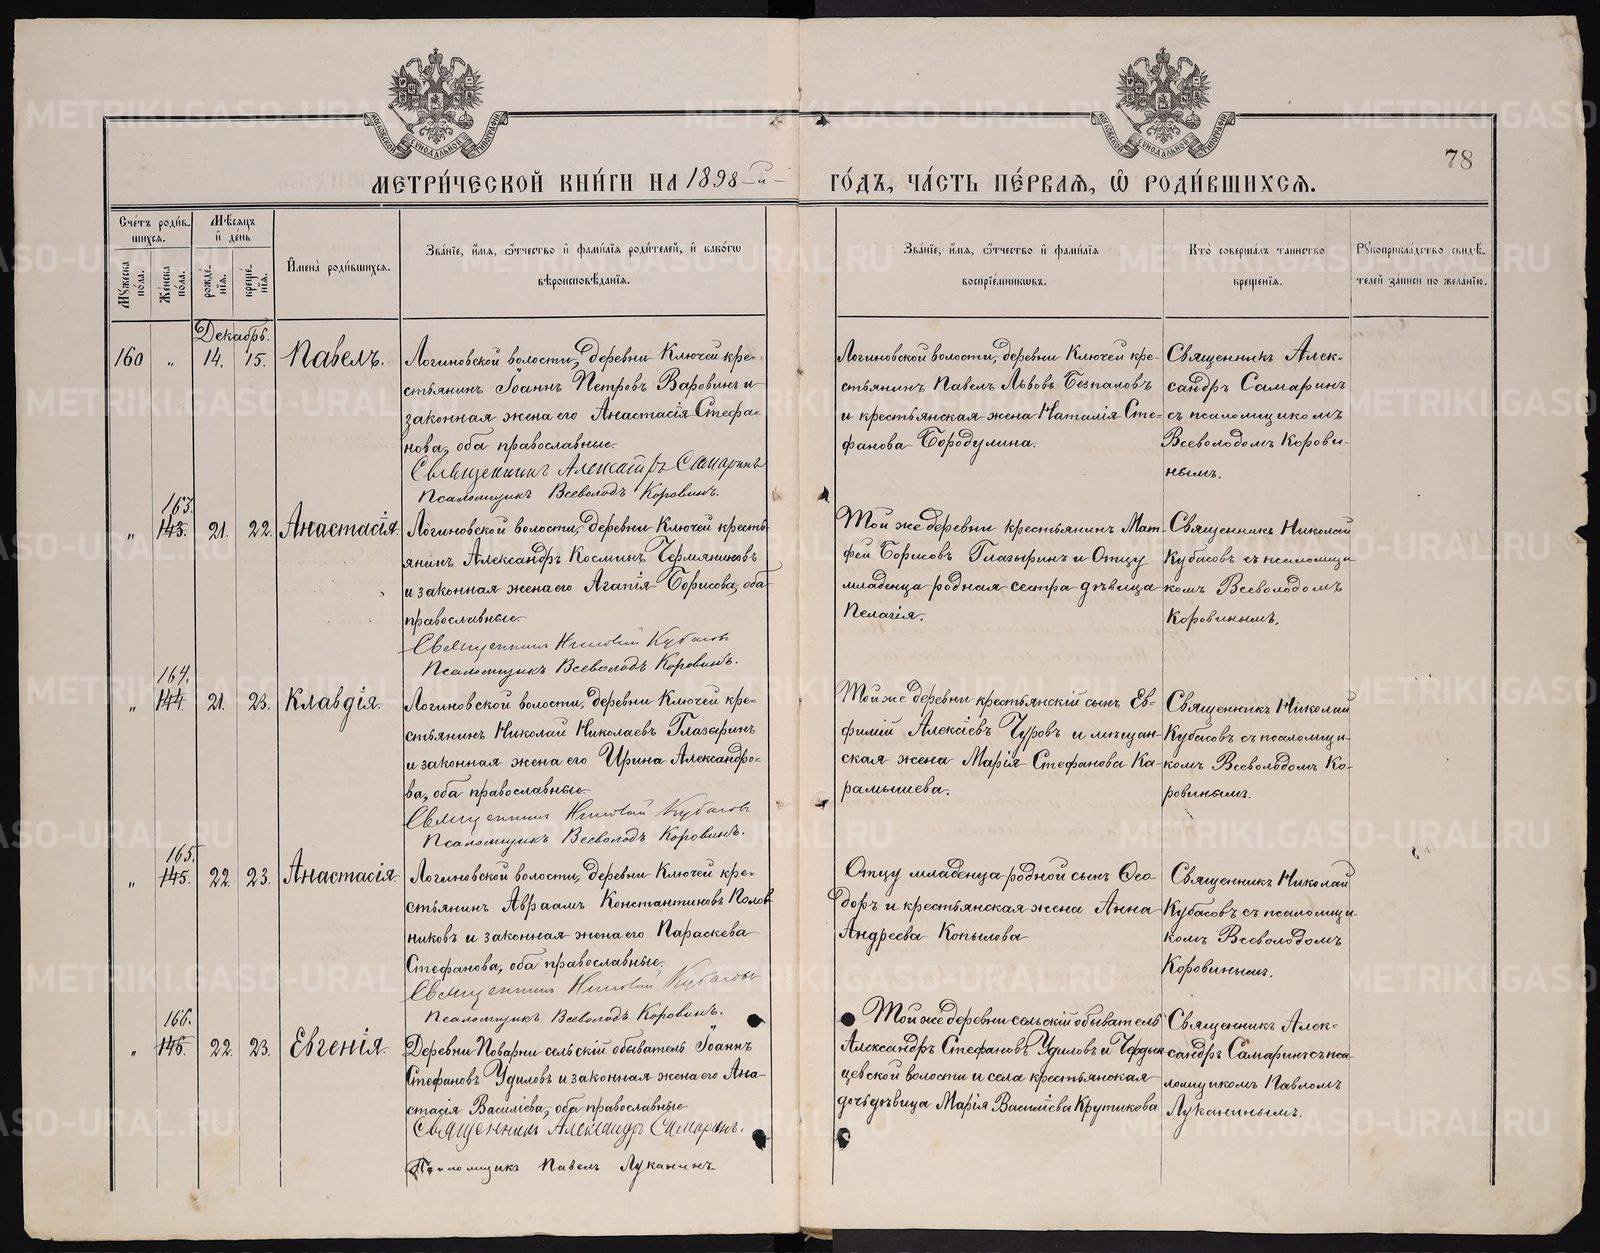 МОСКОВСКОЙ СУНОДАЛЬНОЙ ТИПОГРАФІИ
МОСКОВСКОЙ СУНОДАЛЬНОЙ ТИПОГРАФІИ
78
МЕТРИ́ЧЕСКОЙ КНИ́ГИ НА 1898-й-
ГО́ДЪ, ЧА́СТЬ ПЕ́РВАЯ, Ѡ РОДИ́ВШИХСЯ.
Сче́тъ роди́в-
шихся.
Мꙋ́жеска по́ла.
Же́нска по́ла.
Мѣ́сяцъ
и́ де́нь
рожде́-нїя.
креще́-нїя.
И́мена̀ роди́вшихся.
Зва́нїе, и́мя, ѻ́тчество и́ фами́лїя роди́телей, и́ како́гѡ
вѣроисповѣ́данїя.
Зва́нїе, и́мя, ѻ́тчество и́ фами́лїя
воспрїе́мникѡвъ.
Кто̀ соверша́лъ та́инство
креще́нїя.
Рꙋкоприкла́дство свидѣ́-
телей за́писи по жела́нїю.
Декабрь.
160 „ 14. 15. Павелъ.
Логиновской волости, деревни Ключей кре-
стьянинъ Іоаннъ Петровъ Варовинъ и
законная жена его Анастасія Стефа-
нова, оба православные.
Священникъ Александръ Самаринъ
Псаломщикъ Всеволодъ Коровинъ.
Логиновской волости, деревни Ключей кре-
стьянинъ Павелъ Львовъ Безпаловъ
и крестьянская жена Наталія Сте-
фанова Бородулина.
Священникъ Алек-
сандръ Самаринъ
съ псаломщикомъ
Всеволодомъ Корови-
нымъ.
163.
„ 143. 21. 22. Анастасія.
Логиновской волости, деревни Ключей кресть-
янинъ Александръ Косминъ Чермяниновъ
и законная жена его Агапія Борисова, оба
православные.
Священникъ Николай Кубасовъ
Псаломщикъ Всеволодъ Коровинъ.
Той же деревни крестьянинъ Мат-
фей Борисовъ Глазыринъ и Отцу
младенца родная сестра дѣвица
Пелагія.
Священникъ Николай
Кубасовъ съ псаломщи-
комъ Всеволодомъ
Коровинымъ.
164.
„ 144. 21. 23. Клавдія.
Логиновской волости, деревни Ключей кре-
стьянинъ Николай Николаевъ Глазаринъ
и законная жена его Ирина Александро-
ва, оба православные.
Священникъ Николай Кубасовъ
Псаломщикъ Всеволодъ Коровинъ.
Той же деревни крестьянскій сынъ Ев-
фимій Алексіевъ Чуровъ и мѣщан-
ская жена Марія Стефанова Ка-
рамышева.
Священникъ Николай
Кубасовъ съ псаломщи-
комъ Всеволодомъ Ко-
ровинымъ.
165.
„ 145. 22. 23. Анастасія.
Логиновской волости, деревни Ключей кре-
стьянинъ Авраамъ Константиновъ Полов-
никовъ и законная жена его Параскева
Стефанова, оба православные.
Священникъ Николай Кубасовъ
Псаломщикъ Всеволодъ Коровинъ.
Отцу младенца родной сынъ Ѳео-
доръ и крестьянская жена Анна
Андреева Копылова
Священникъ Николай
Кубасовъ съ псаломщи-
комъ Всеволодомъ
Коровинымъ.
166.
„ 146. 22. 23. Евгенія.
Деревни Поварни сельскій обыватель Іоаннъ
Стефановъ Удиловъ и законная жена его Ана-
стасія Василіева, оба православные
Священникъ Александръ Самаринъ.
Псаломщикъ Павелъ Луканинъ
Той же деревни сельскій обыватель
Александръ Стефановъ Удиловъ и
цевской волости и села крестьянская
дочь дѣвица Марія Василіева Крутикова
Священникъ Алек-
сандръ Самаринъ съ пса-
ломщикомъ Павломъ
Луканинымъ.
METRIKI.GASO-URAL.RU